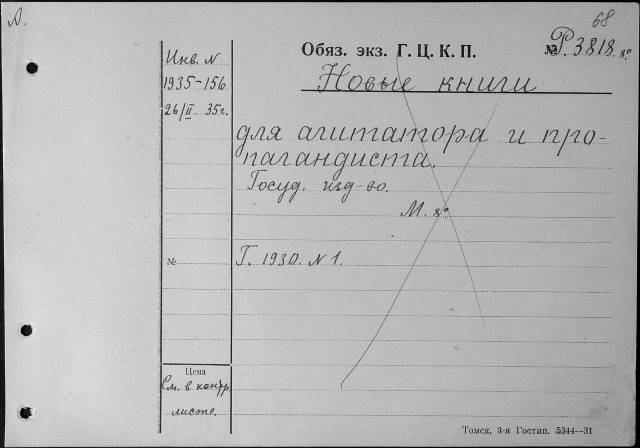 А.
68
Обяз. экз. Г. Ц. К. П.
№ Р. 3818. 8º
Инв. N
1935-156
26/II. 35 г.
Новые книги
для агитатора и про-
пагандиста.
Госуд. изд-во.
М. 8º.
№
Г. 1930. N 1.
Цена
См. в контр.
листе.
Томск, 3-я Гостип. 5344—31